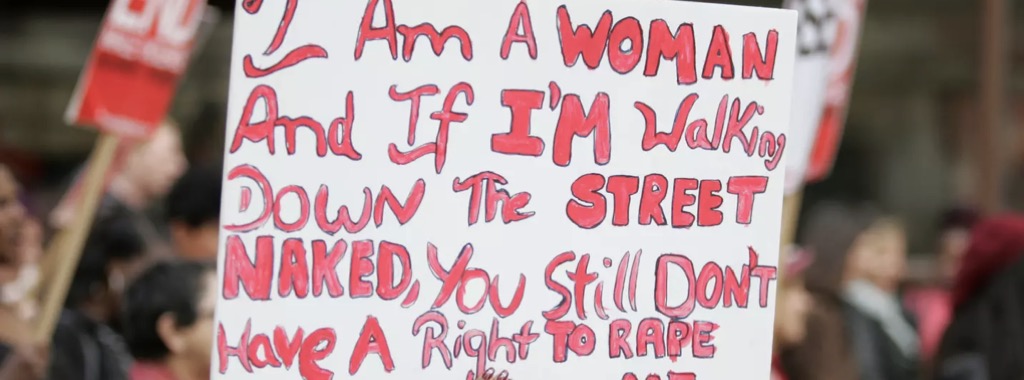 END
I Am A WOMAN
And If I'M Walking
DOWN The STREET
NAKED, You Still DON'T
Have A Right TO RAPE
ME